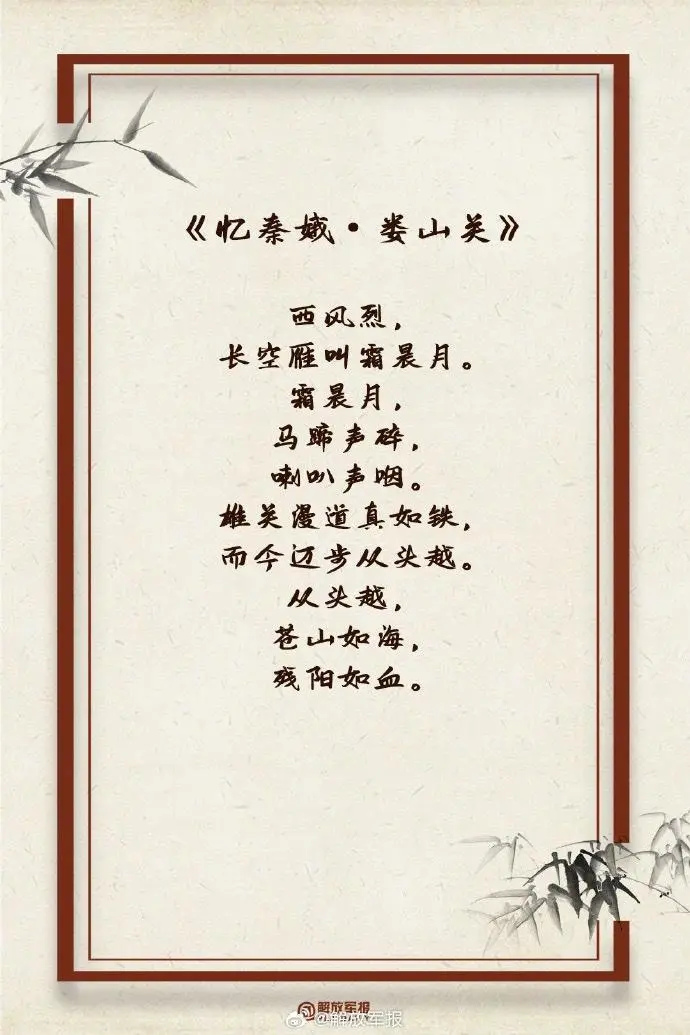 《忆秦娥·娄山关》
西风烈，
长空雁叫霜晨月。
霜晨月，
马蹄声碎，
喇叭声咽。
雄关漫道真如铁，
而今迈步从头越。
从头越，
苍山如海，
残阳如血。
@解放军报
@解放军报